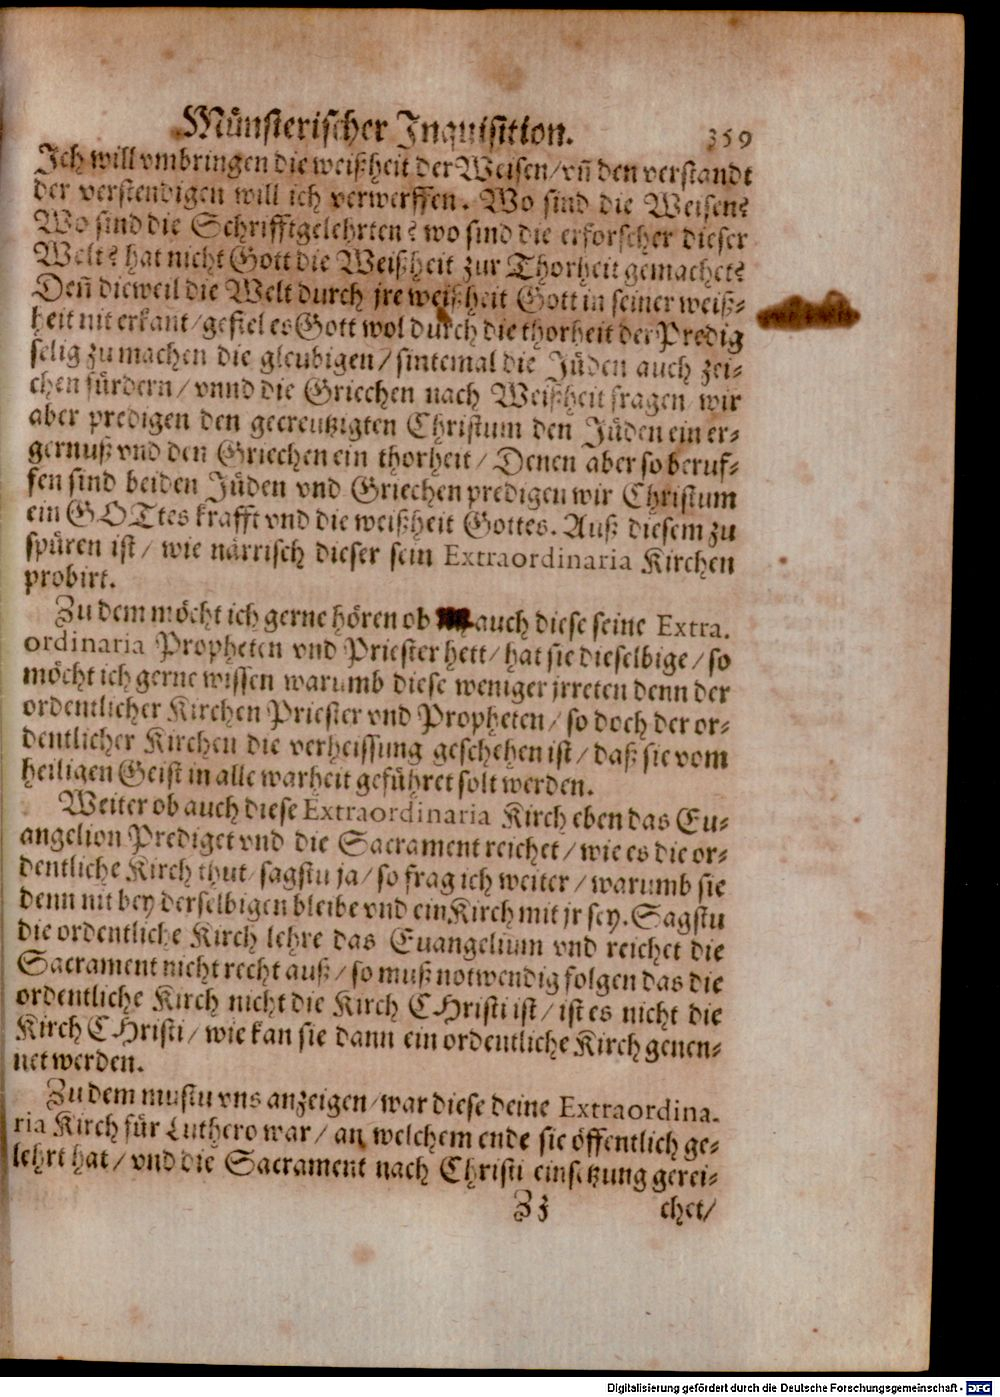 Münsterischer Inquisition. 359
Ich will vmbringen die weißheit der Weisen/vñ den verstandt
der verstendigen will ich verwerffen. Wo sind die Weisen?
Wo sind die Schrifftgelehrten? wo sind die erforscher dieser
Welt? hat nicht Gott die Weißheit zur Thorheit gemachet?
Deñ dieweil die Welt durch jre weißheit Gott in seiner weiß-
heit nit erkant/gefiel es Gott wol durch die thorheit der Predig
selig zu machen die gleubigen/ sintemal die Jüden auch zei-
chen fürdern/ vnnd die Griechen nach Weißheit fragen wir
aber predigen den gecreutzigten Christum den Jüden ein er-
gernuß vnd den Griechen ein thorheit/ Denen aber so beruf-
fen sind beiden Jüden vnd Griechen predigen wir Christum
ein GOTtes krafft vnd die weißheit Gottes. Auß diesem zu
spüren ist/ wie närrisch dieser sein Extraordinaria Kirchen
probirt.
Zu dem möcht ich gerne hören ob auch diese seine Extra.
ordinaria Propheten vnd Priester hett/ hat sie dieselbige/ so
möcht ich gerne wissen warumb diese weniger jrreten denn der
ordentlicher Kirchen Priester vnd Propheten/ so doch der or-
dentlicher Kirchen die verheissung geschehen ist/ daß sie vom
heiligen Geist in alle warheit geführet solt werden.
Weiter ob auch diese Extraordinaria Kirch eben das Eu-
angelion Prediget vnd die Sacrament reichet/ wie es die or-
dentliche Kirch thut/ sagstu ja/ so frag ich weiter/ warumb sie
denn nit bey derselbigen bleibe vnd ein Kirch mit jr sey. Sagstu
die ordentliche Kirch lehre das Euangelium vnd reichet die
Sacrament nicht recht auß/ so muß notwendig folgen das die
ordentliche Kirch nicht die Kirch CHristi ist/ ist es nicht die
Kirch CHristi/ wie kan sie dann ein ordentliche Kirch genen-
net werden.
Zu dem mustu vns anzeigen/ war diese deine Extraordina.
ria Kirch für Luthero war/ an welchem ende sie öffentlich ge-
lehrt hat/ vnd die Sacrament nach Christi einsetzung gerei-
Zz chet/
Digitalisierung gefördert durch die Deutsche Forschungsgemeinschaft - DFG